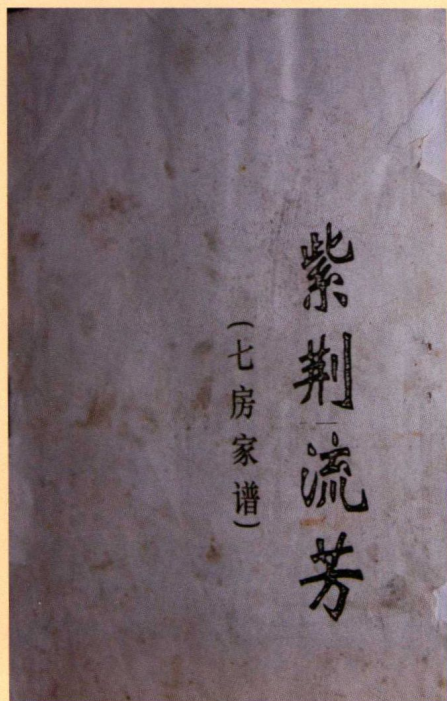 紫荆流芳
(七房家谱)